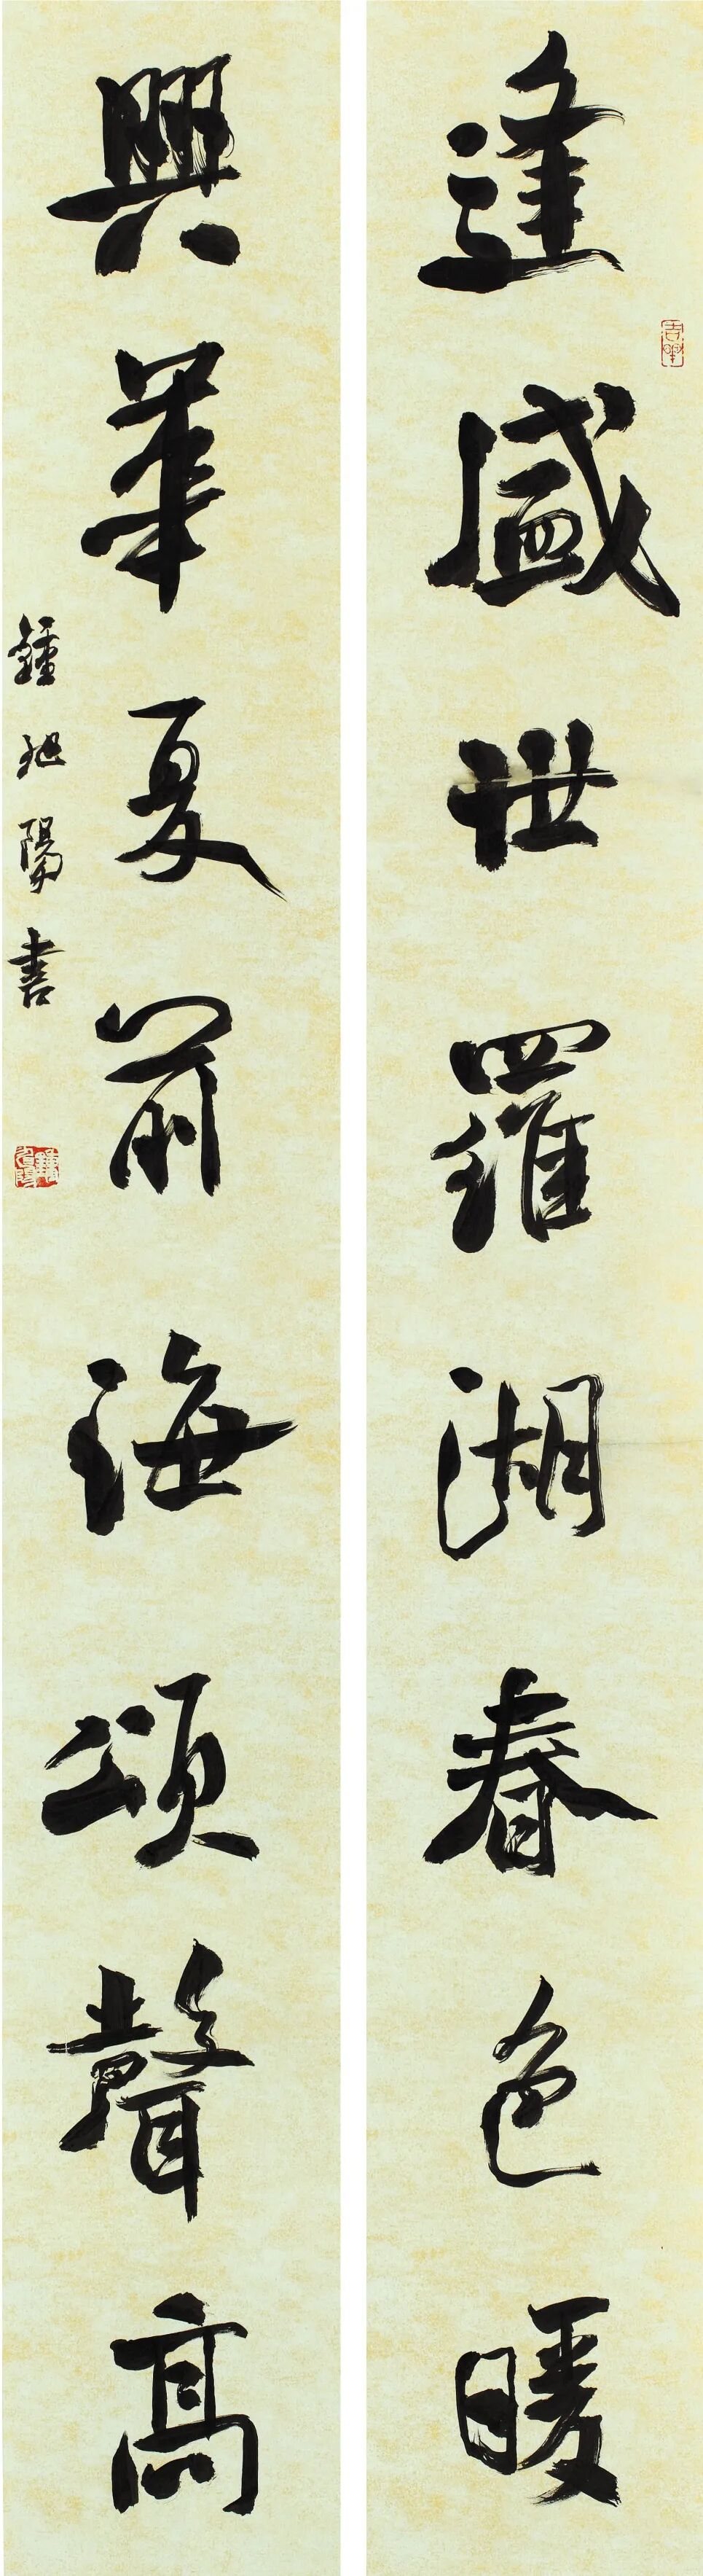 逢盛世羅湖春色暖
興華夏前海頌聲高
鍾旭陽書